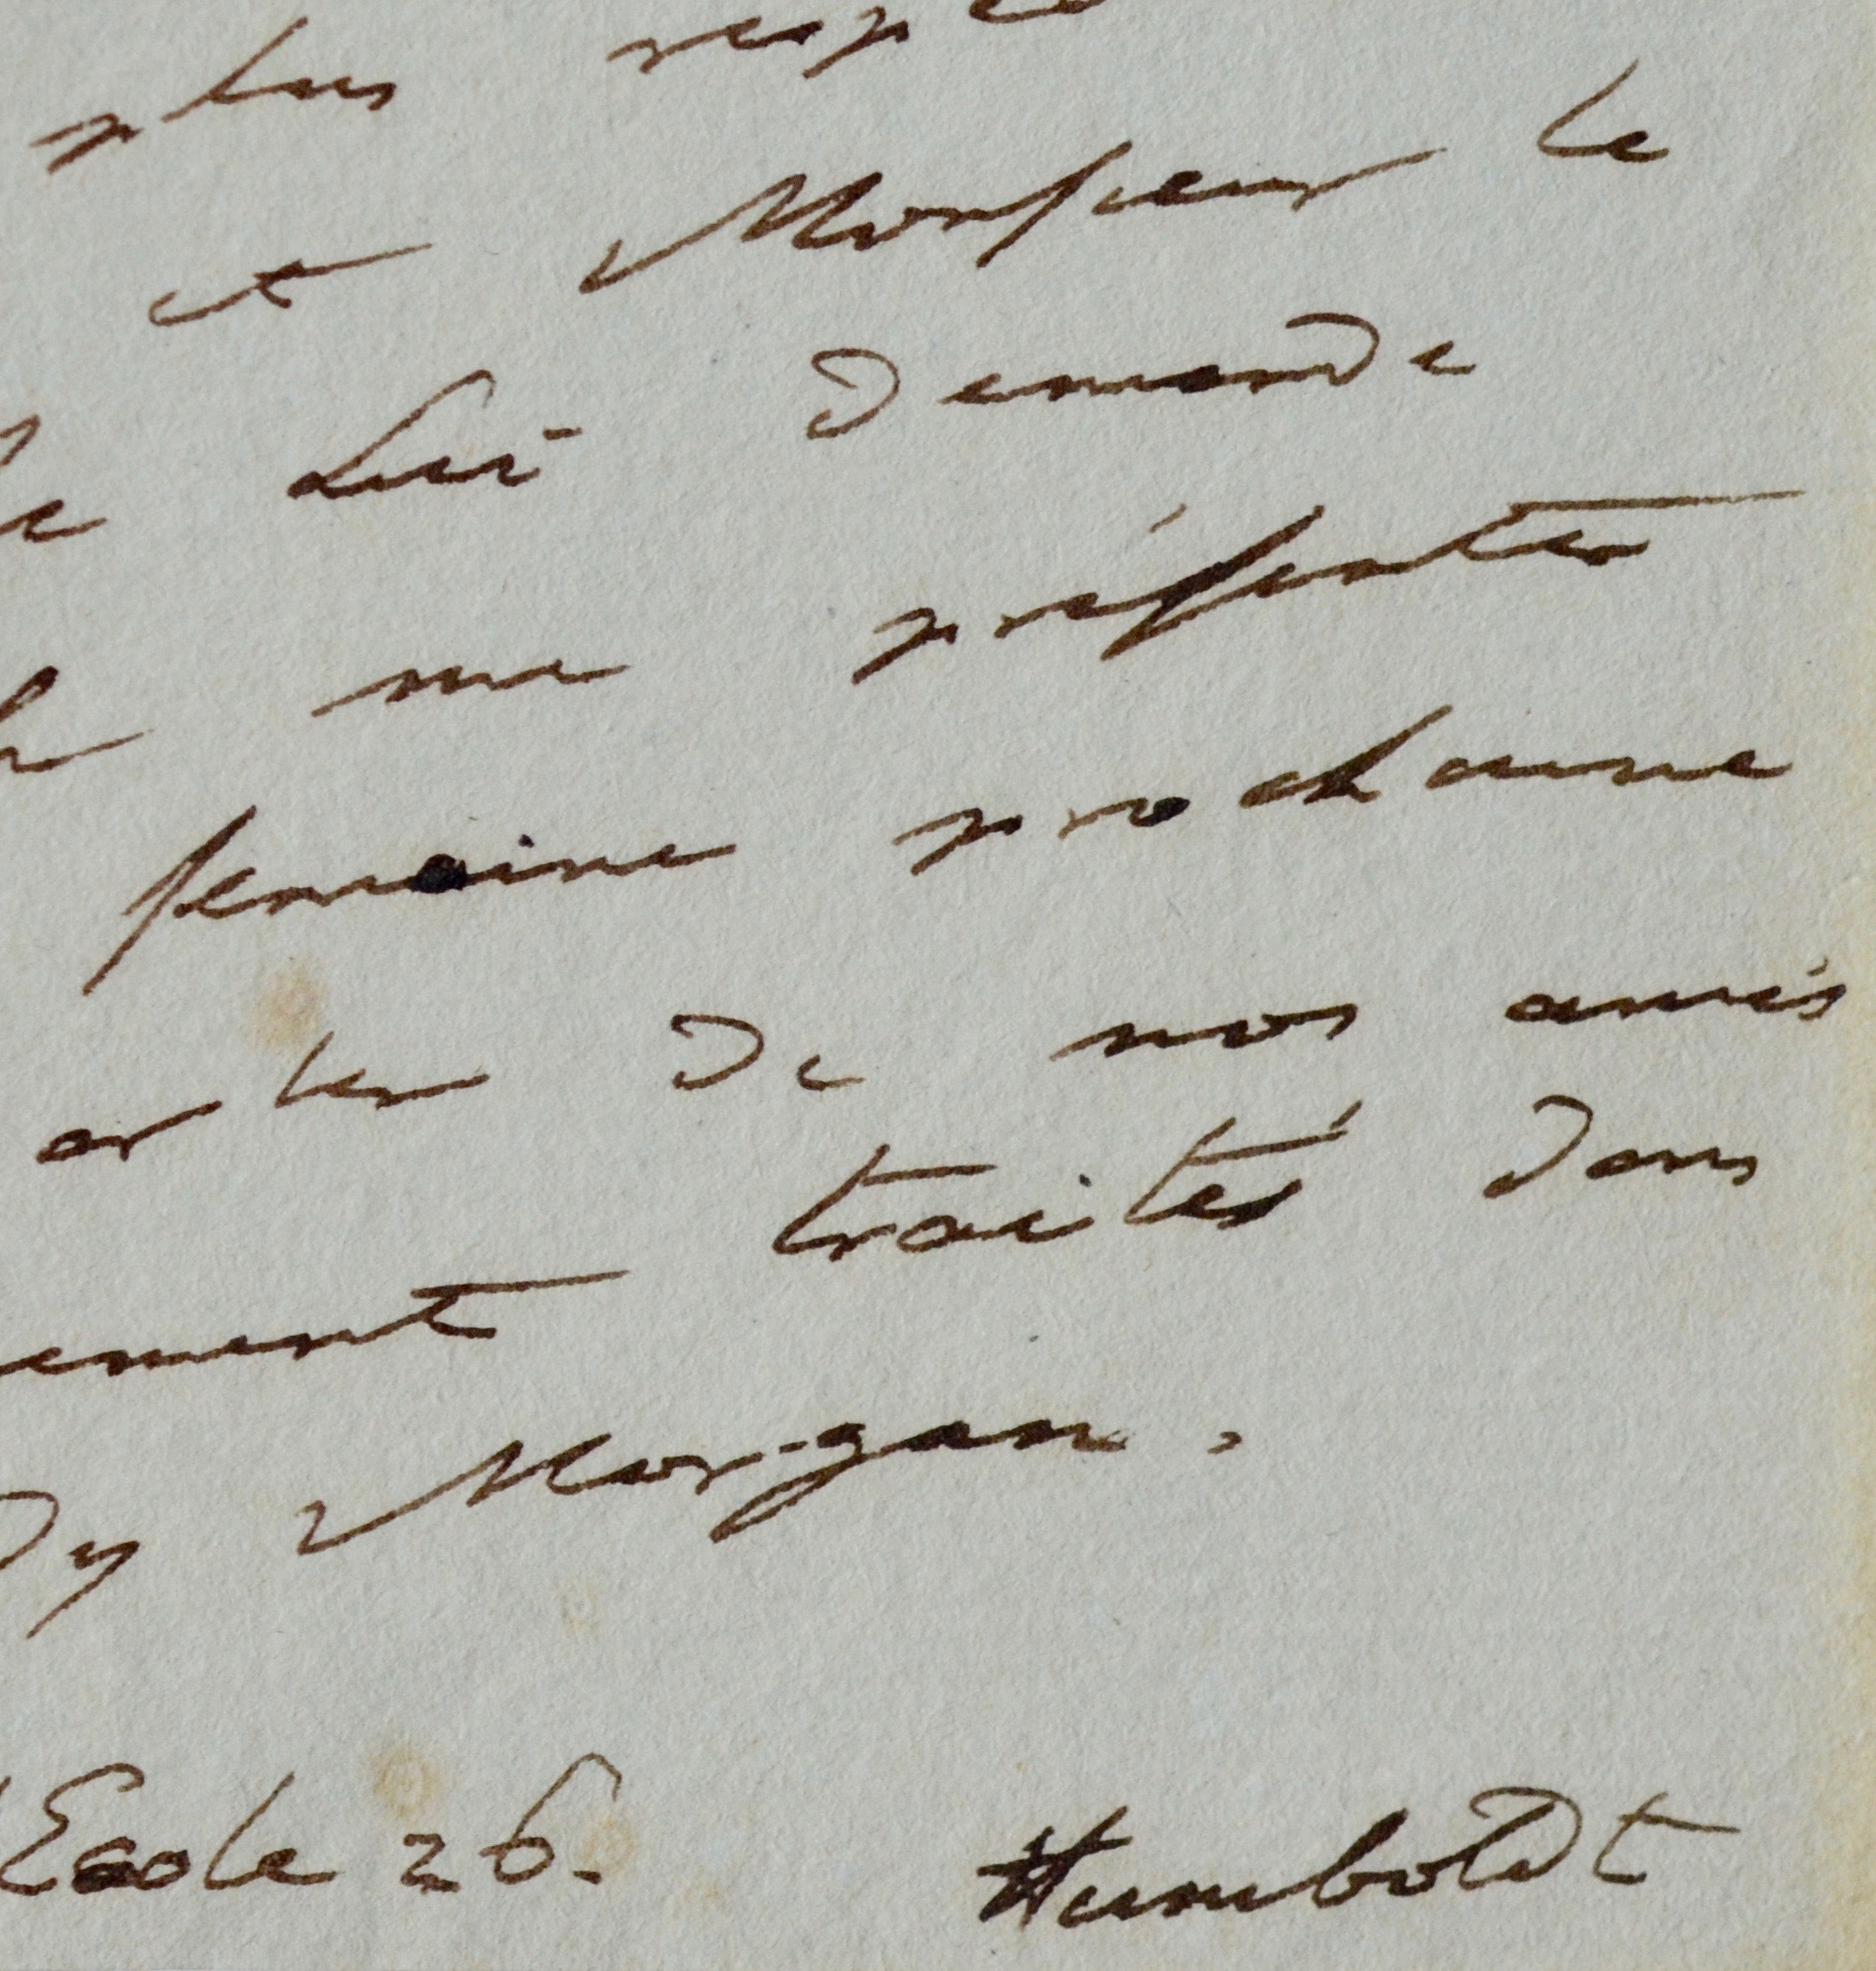 plus respe
et Monsieur le
Lui demande
me présenter
semaine prochaine
arler de nos amis
ement traités dans
dy Morgan.
Ecole 26. Humboldt